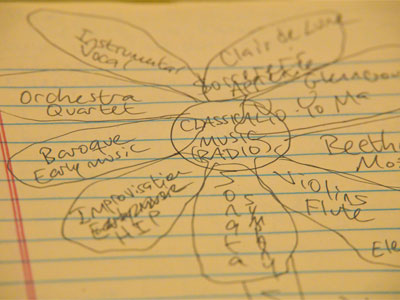 Instrumental
Vocal
Clair de Lune
Orchestra
Quartet
Yo Ma
CLASSICAL
MUSIC
(RADIO)
Baroque
Early music
Improvisation
HIP
Violins
Flute
Sonata
Symphony
Beeth
Mo
Ele